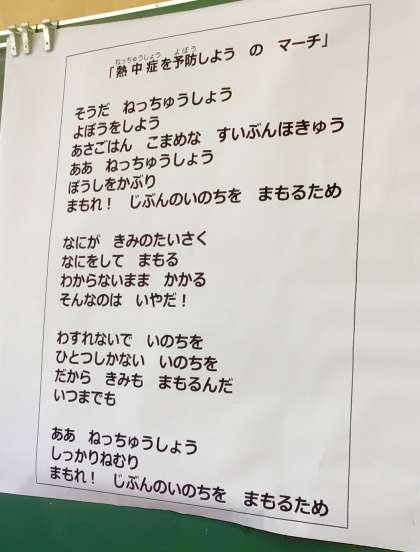 「熱中症を予防しよう　の　マーチ」
そうだ　ねっちゅうしょう
よぼうをしよう
あさごはん　こまめな　すいぶんほきゅう
ああ　ねっちゅうしょう
ぼうしをかぶり
まもれ！　じぶんのいのちを　まもるため
なにが　きみのたいさく
なにをして　まもる
わからないまま　かかる
そんなのは　いやだ！
わすれないで　いのちを
ひとつしかない　いのちを
だから　きみも　まもるんだ
いつまでも
ああ　ねっちゅうしょう
しっかりねむり
まもれ！　じぶんのいのちを　まもるため